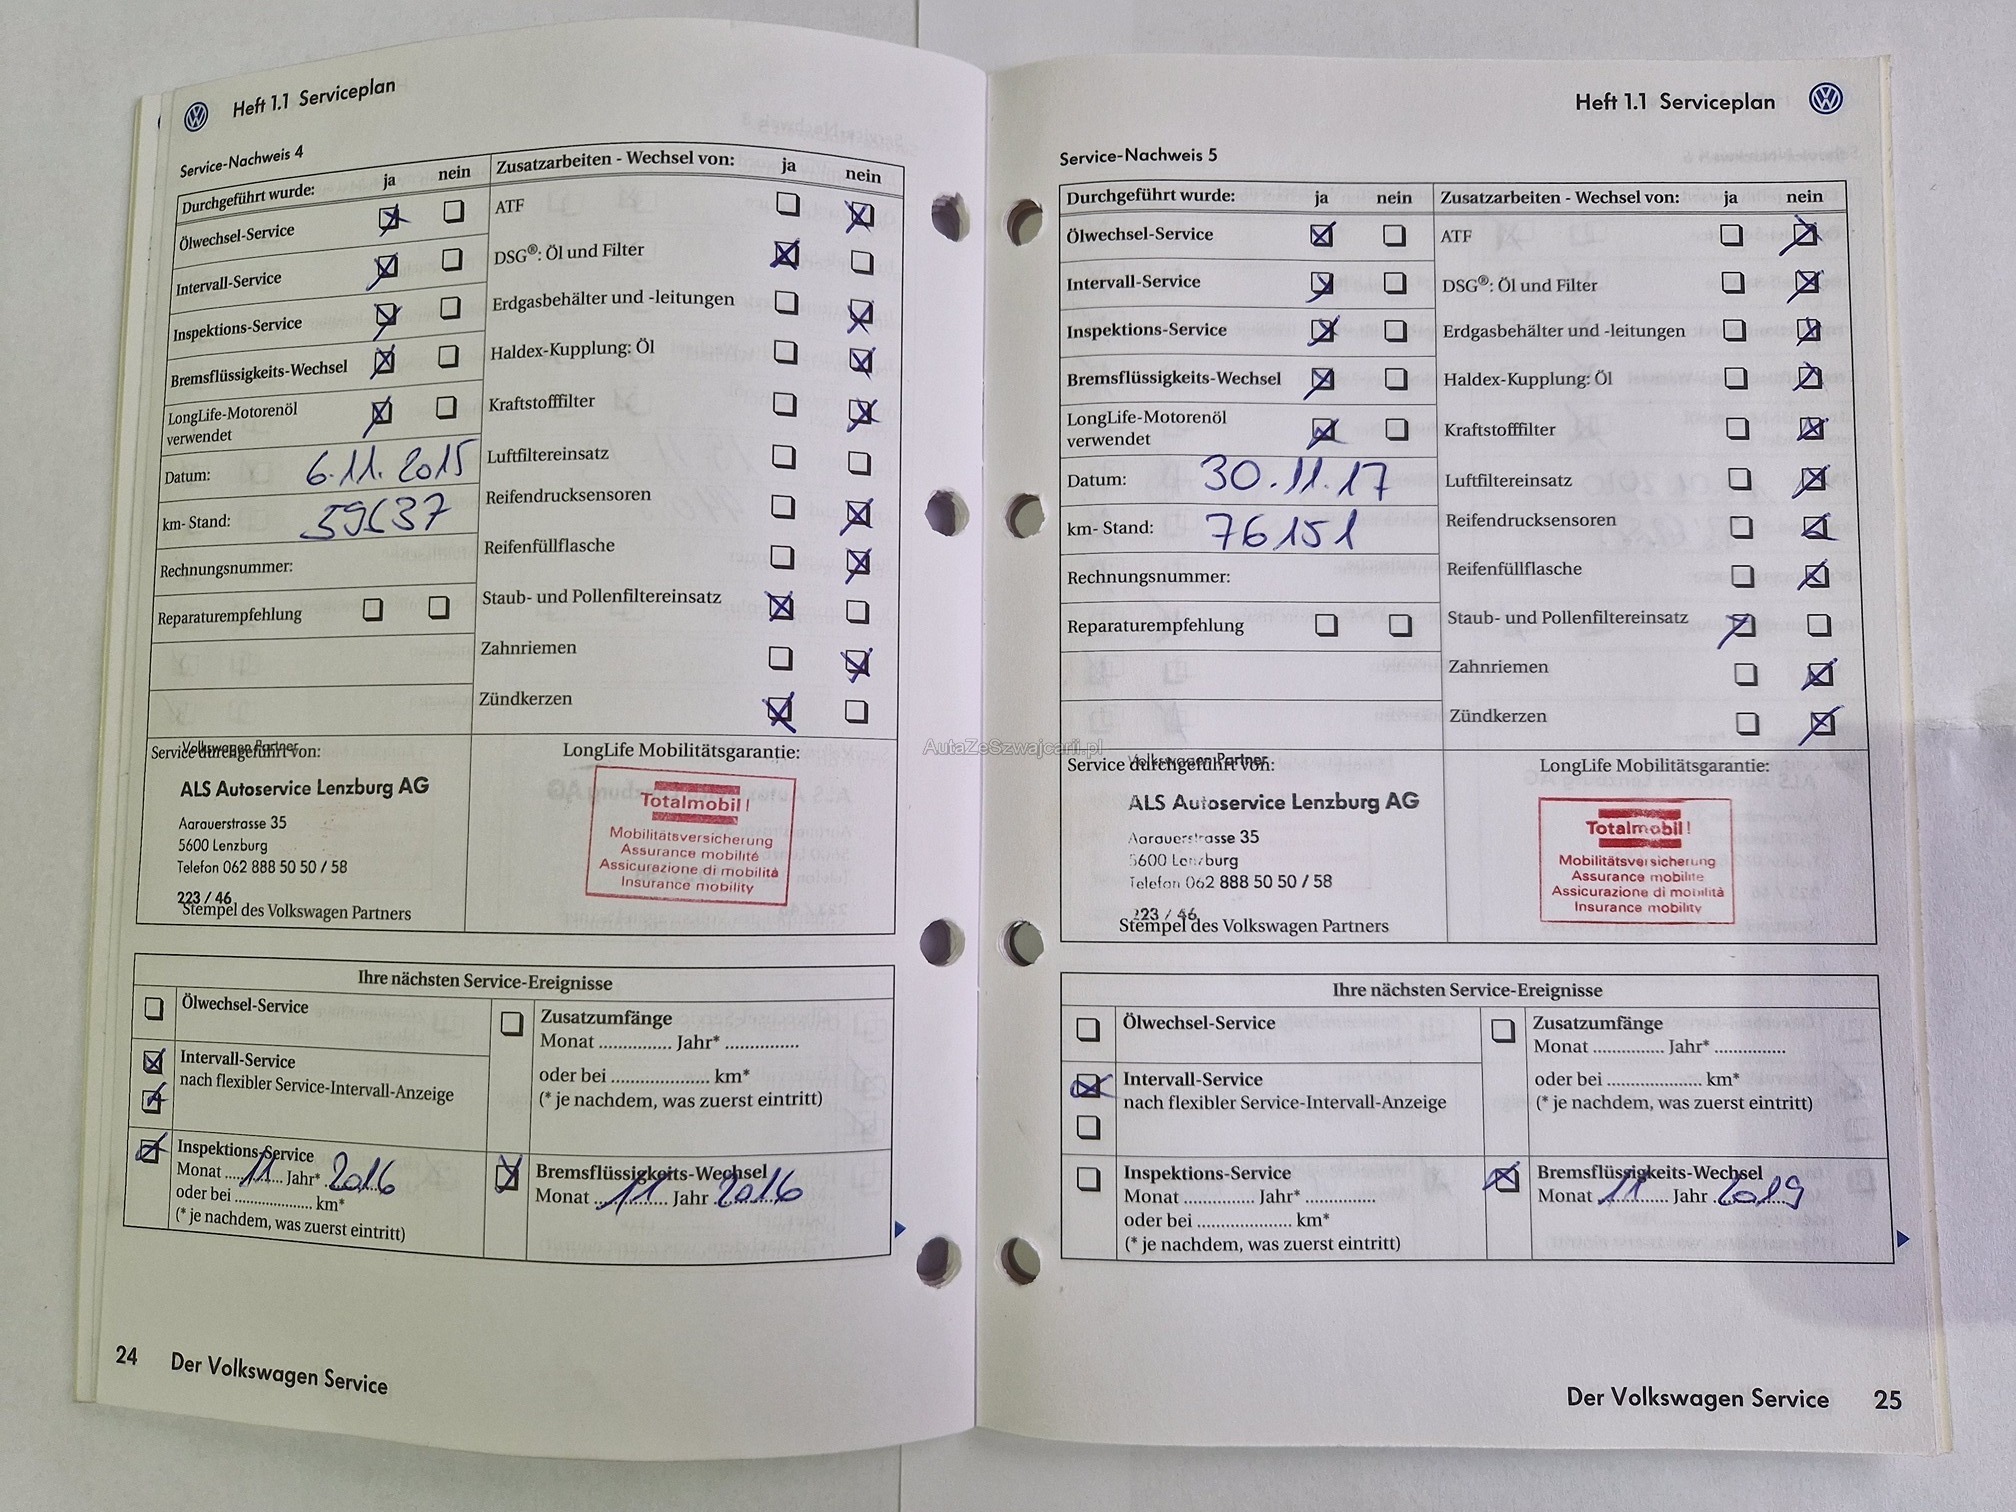 Heft 1.1 Serviceplan
Service-Nachweis 4
Durchgeführt wurde: ja nein
Ölwechsel-Service
Intervall-Service
Inspektions-Service
Bremsflüssigkeits-Wechsel
LongLife-Motorenöl
verwendet
Datum: 6.11.2015
km- Stand: 59637
Rechnungsnummer:
Reparaturempfehlung
Zusatzarbeiten - Wechsel von: ja nein
ATF
DSG®: Öl und Filter
Erdgasbehälter und -leitungen
Haldex-Kupplung: Öl
Kraftstofffilter
Luftfiltereinsatz
Reifendrucksensoren
Reifenfüllflasche
Staub- und Pollenfiltereinsatz
Zahnriemen
Zündkerzen
Service durchgeführt von:
Volkswagen Partner
ALS Autoservice Lenzburg AG
Aarauerstrasse 35
5600 Lenzburg
Telefon 062 888 50 50 / 58
223 / 46
Stempel des Volkswagen Partners
LongLife Mobilitätsgarantie:
Totalmobil!
Mobilitätsversicherung
Assurance mobilité
Assicurazione di mobilità
Insurance mobility
Ihre nächsten Service-Ereignisse
Ölwechsel-Service
Intervall-Service
nach flexibler Service-Intervall-Anzeige
Inspektions-Service
Monat ..11.. Jahr* 2016
oder bei .................... km*
(* je nachdem, was zuerst eintritt)
Zusatzumfänge
Monat .............. Jahr* ..............
oder bei .................... km*
(* je nachdem, was zuerst eintritt)
Bremsflüssigkeits-Wechsel
Monat ..11.. Jahr 2016
24 Der Volkswagen Service
Heft 1.1 Serviceplan
Service-Nachweis 5
Durchgeführt wurde: ja nein
Ölwechsel-Service
Intervall-Service
Inspektions-Service
Bremsflüssigkeits-Wechsel
LongLife-Motorenöl
verwendet
Datum: 30.11.17
km- Stand: 76151
Rechnungsnummer:
Reparaturempfehlung
Zusatzarbeiten - Wechsel von: ja nein
ATF
DSG®: Öl und Filter
Erdgasbehälter und -leitungen
Haldex-Kupplung: Öl
Kraftstofffilter
Luftfiltereinsatz
Reifendrucksensoren
Reifenfüllflasche
Staub- und Pollenfiltereinsatz
Zahnriemen
Zündkerzen
AutaZeSzwajcarii.pl
Service durchgeführt von:
Volkswagen Partner
ALS Autoservice Lenzburg AG
Aarauerstrasse 35
5600 Lenzburg
Telefon 062 888 50 50 / 58
223 / 46
Stempel des Volkswagen Partners
LongLife Mobilitätsgarantie:
Totalmobil!
Mobilitätsversicherung
Assurance mobilité
Assicurazione di mobilità
Insurance mobility
Ihre nächsten Service-Ereignisse
Ölwechsel-Service
Intervall-Service
nach flexibler Service-Intervall-Anzeige
Inspektions-Service
Monat .............. Jahr* ..............
oder bei .................... km*
(* je nachdem, was zuerst eintritt)
Zusatzumfänge
Monat .............. Jahr* ..............
oder bei .................... km*
(* je nachdem, was zuerst eintritt)
Bremsflüssigkeits-Wechsel
Monat ..11.. Jahr 2019
Der Volkswagen Service 25